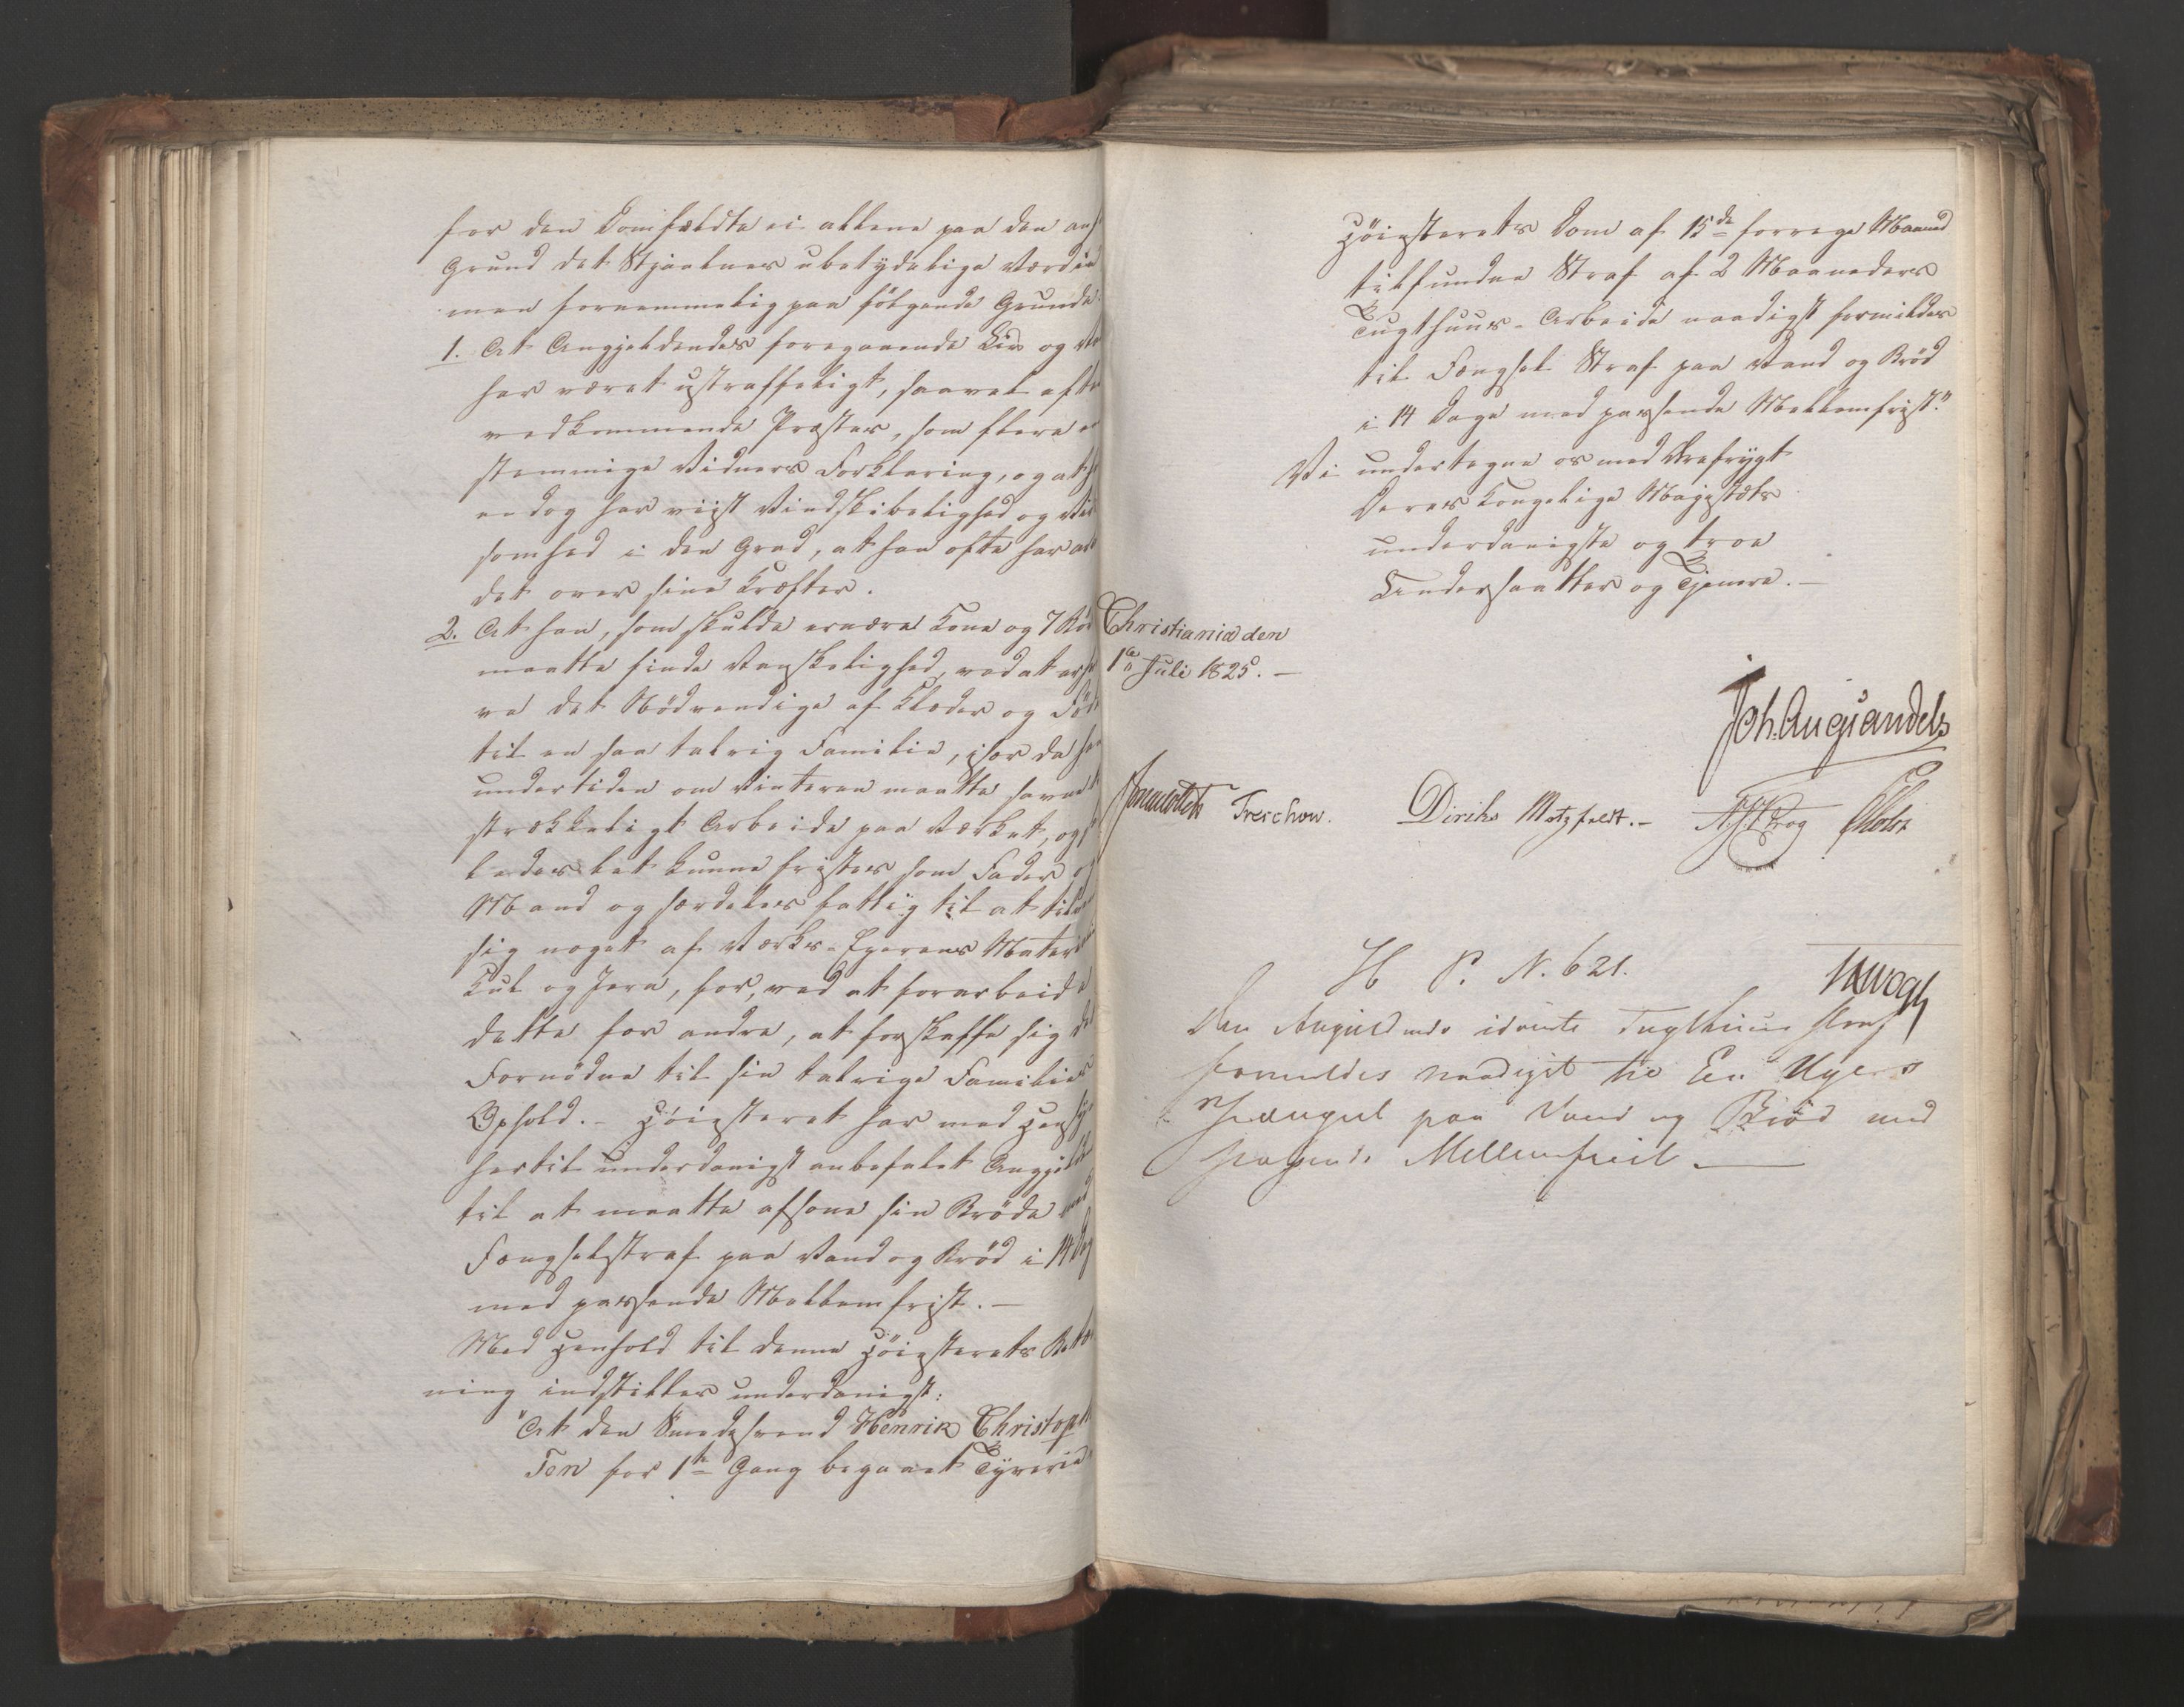 for den Domfældte ei allene paa den anf
Grund det Stjaalnes ubetydelige Værdie
men fornemmelig paa følgende Grunde.
1. At Angjeldendes foregaaende Liv og
har været ustraffeligt, saavel efter
vedkommende Præster, som flere
stemmige Vidners Forklaring, og at
endog har viist Vindskibelighed og
somhed i den Grad, at han ofte har
det over sine Kræfter.
2. At han, som skulde ernære Kone og 7 Bør
maatte finde Vanskelighed ved at
ve det Nødvendige af Klæder og Føde
til en saa talrig Familie, især da han
undertiden om Vinteren maatte savne
strækkeligt Arbeide paa Værket, og
ledes let kunne fristes som Fader og
Mand og særdeles fattig til at
sig noget af Værks-Eierens Materi
Kul og Jern, for, ved at forarbeide
dette for andre, at forskaffe sig det
Fornødne til sin talrige Families
Ophold. - Høiesteret har med Hensyn
hertil underdanigst anbefalet Angjeld
til at maatte afsone sin Brøde med
Fængselstraf paa Vand og Brød i 14 Dag
med passende Mellemfrist. -
Med Henhold til denne Høiesterets Betænk
ning indstilles underdanigst:
"At den Smedesvend Henrik Christoph
Ten for 1te Gang begaaet Tyverie
Høiesterets Dom af 15de forrige Maaned
tilfundne Straf af 2 Maaneders
Tugthuus-Arbeide naadigst formildes
til Fængsel Straf paa Vand og Brød
i 14 Dage med passende Mellemfrist."
Vi undertegne os med Ærefrygt
Deres Kongelige Majestæts
underdanigste og troe
Undersaatter og Tjenere. -
Christiania den
1te Juli 1825. -
Joh. Aug Sandels
Sommerhielm Treschow. Diriks Motzfeldt. - Krog Holst
H P. N. 621.
Den Angieldende idømte Tugthuus straf
formildes naadigst til Een Uges
Fængsel paa Vand og Brød med
passende Mellemfrist -